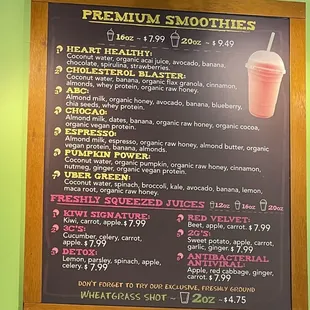 PREMIUM SMOOTHIES
16oz ~ $7.99 20oz ~ $9.49
HEART HEALTHY:
Coconut water, organic acai juice, avocado, banana,
chocolate, spirulina, strawberries.
CHOLESTEROL BLASTER:
Coconut water, banana, organic flax granola, cinnamon,
almonds, whey protein, organic raw honey.
ABC:
Almond milk, organic honey, avocado, banana, blueberry,
chia seeds, whey protein.
CHOCAO:
Almond milk, dates, banana, organic raw honey, organic cocoa,
organic vegan protein.
ESPRESSO:
Almond milk, espresso, organic raw honey, almond butter, organic
vegan protein, banana, almonds.
PUMPKIN POWER:
Coconut water, organic pumpkin, organic raw honey, cinnamon,
nutmeg, ginger, organic vegan protein.
UBER GREEN:
Coconut water, spinach, broccoli, kale, avocado, banana, lemon,
maca root, organic raw honey.
FRESHLY SQUEEZED JUICES 12oz 16oz 20oz
KIWI SIGNATURE:
Kiwi, carrot, apple. $7.99
3C'S:
Cucumber, celery, carrot,
apple. $7.99
DETOX:
Lemon, parsley, spinach, apple,
celery. $7.99
RED VELVET:
Beet, apple, carrot. $7.99
2G'S:
Sweet potato, apple, carrot,
garlic, ginger. $7.99
ANTIBACTERIAL
ANTIVIRAL:
Apple, red cabbage, ginger,
carrot. $7.99
DON'T FORGET TO TRY OUR EXCLUSIVE, FRESHLY GROUND
WHEATGRASS SHOT ~ 2oz ~$4.75